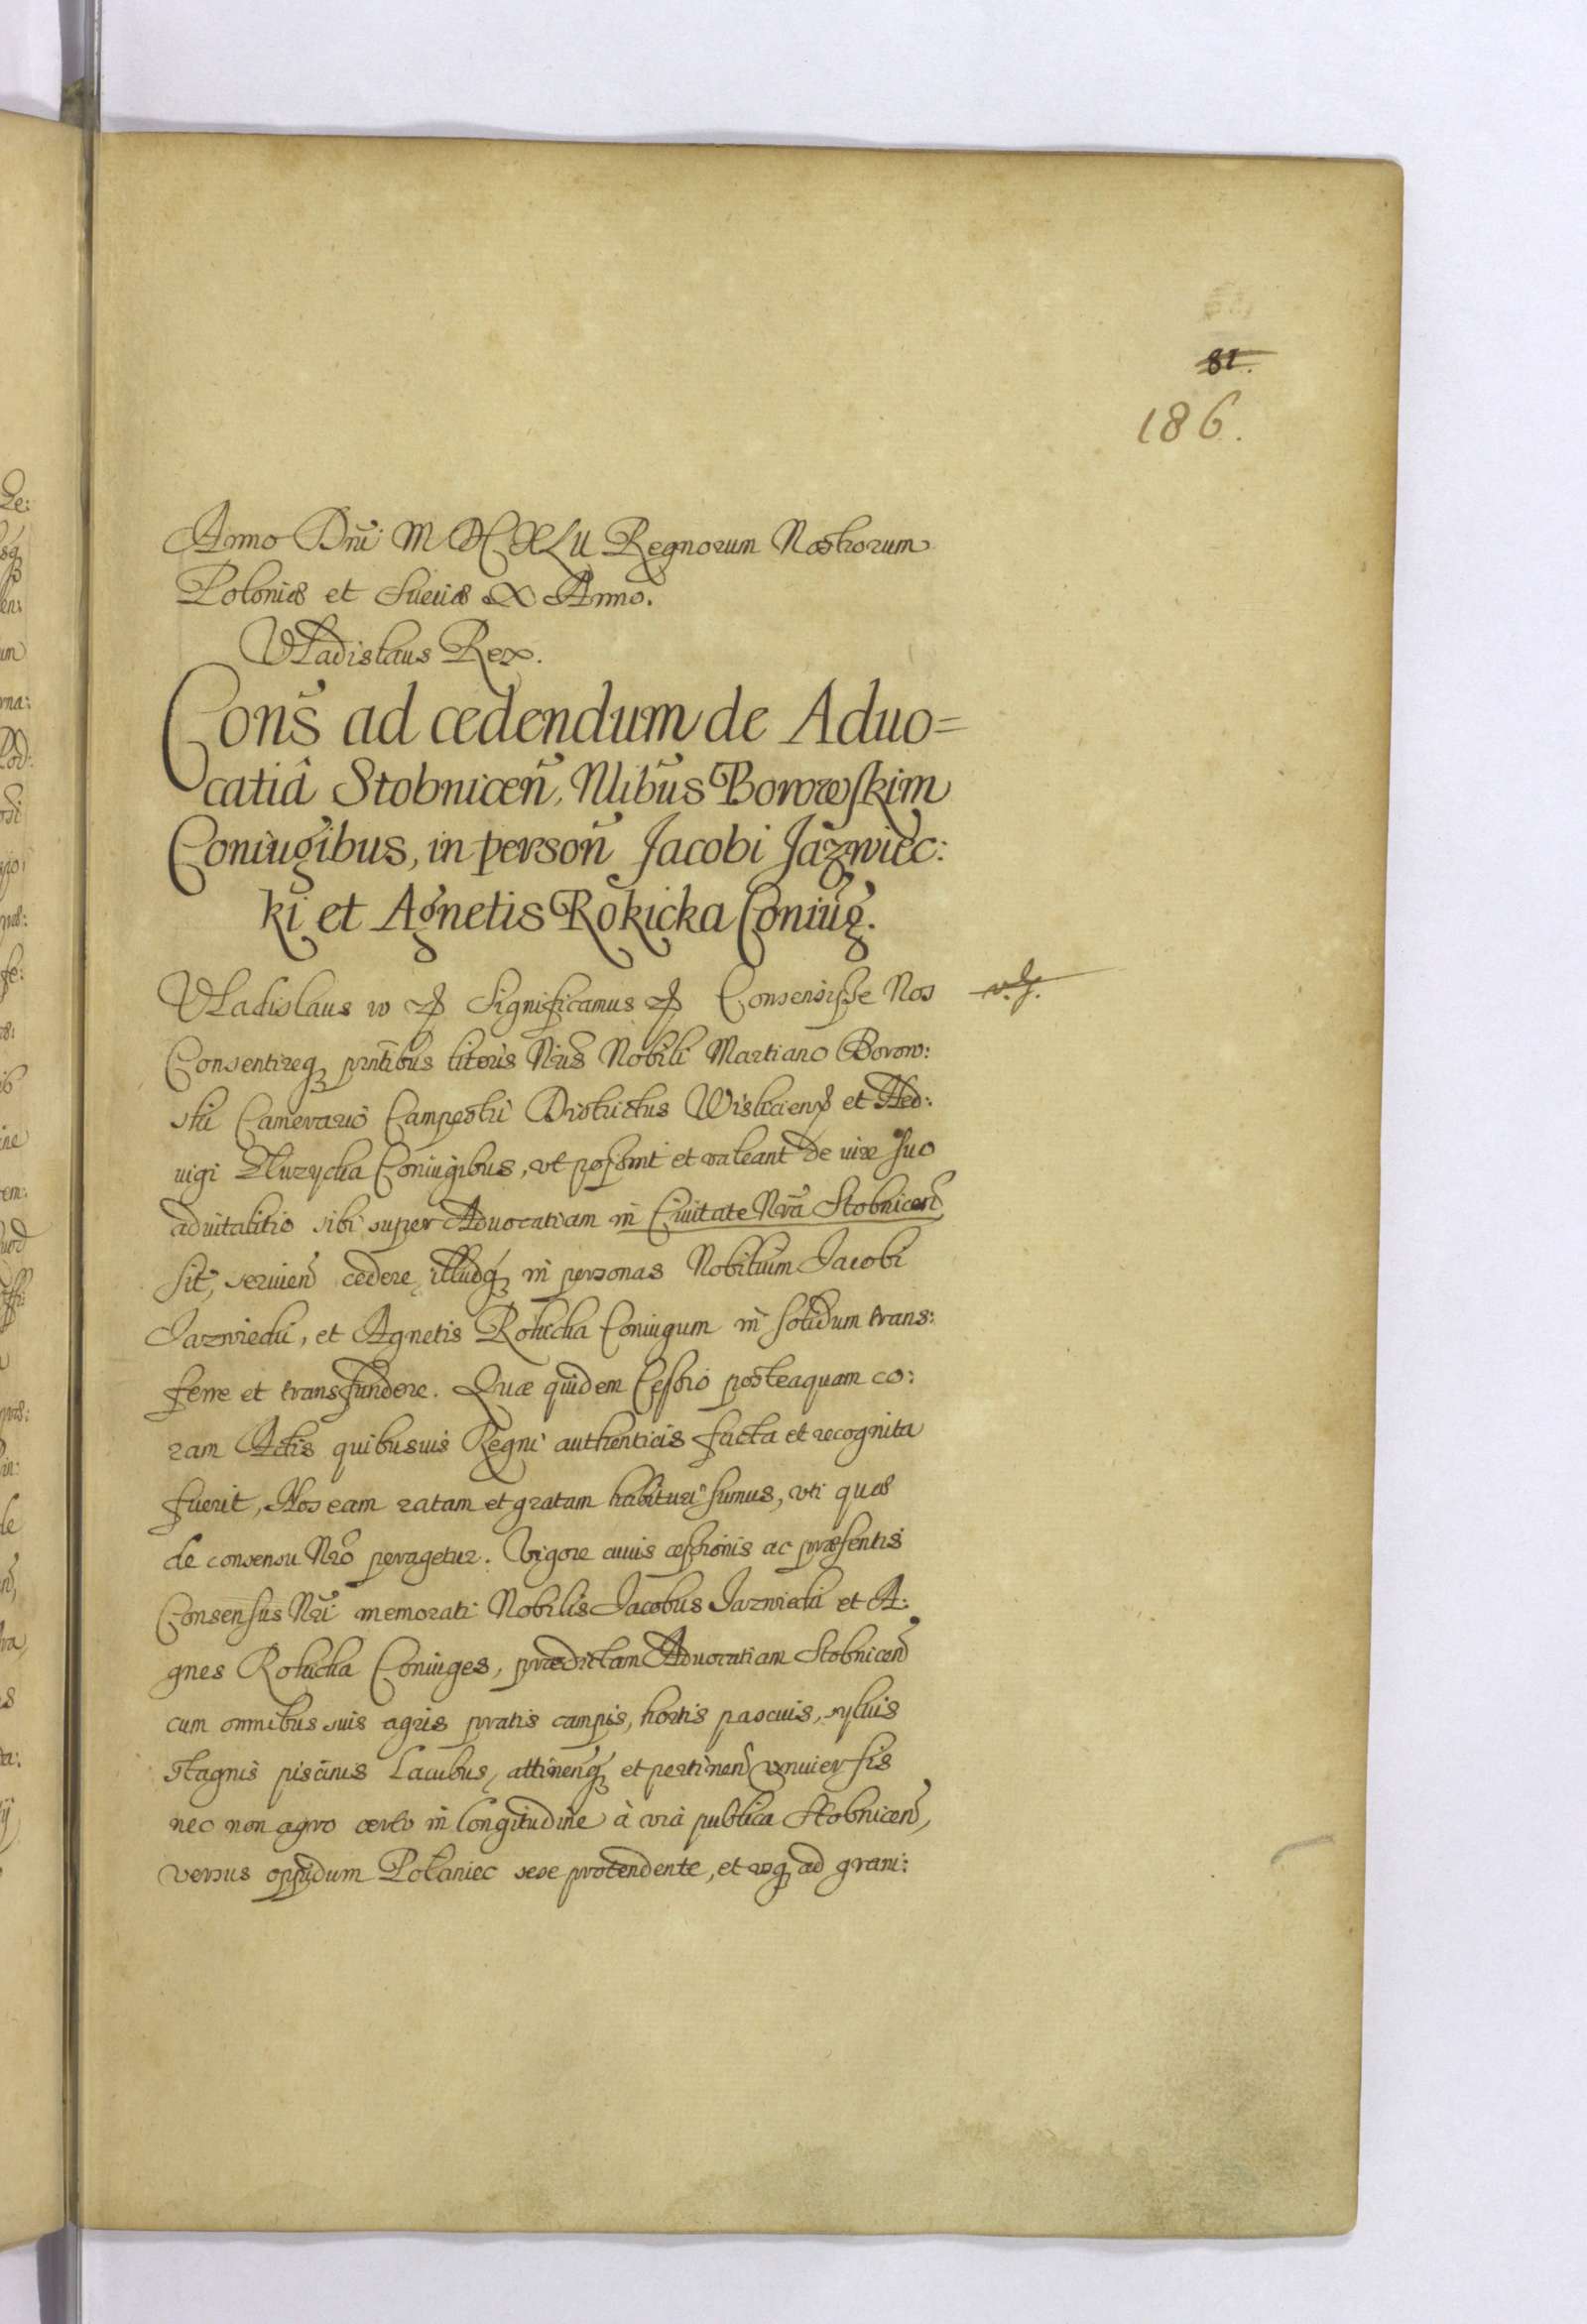 81.
186.
Anno Dnĩ M DC XLII Regnorum Nostrorum
Poloniæ et Sueciæ X Anno.
Vladislaus Rex.
Cons̃ ad cedendum de Aduo=
catiâ Stobniceñ, Nlibus Borowskim
Coniugibus, in persoñ Jacobi Jazwiec:
ki et Agnetis Rokicka Coniug.
Vladislaus IV etc Significamus etc Consensisse Nos
Consentireq prntibus literis Nris Nobili Martiano Borow:
ski Camerario Campestri Districtus Wisliciens et Hed:
uigi Dluzycka Coniugibus, vt possint et valeant de iure suo
aduitalitio sibi super Aduocatiam in Ciuitate Nrã Stobniceñ
sit, seruieñ cedere, illudq in personas Nobilium Jacobi
Jazwiecki, et Agnetis Rokicka Coniugum in solidum trans:
ferre et transfundere. Quæ quidem Cessio posteaquam co:
ram Actis quibusuis Regni authenticis facta et recognita
fuerit, Nos eam ratam et gratam habituri sumus, vti quæ
de consensu Nrõ peragetur. Vigore cuius cessionis ac præsentis
Consensus Nrĩ memorati Nobilis Jacobus Jazwiecki et A:
gnes Rokicka Coniuges, prædictam Aduocatiam Stobniceñ
cum omnibus suis agris pratis campis, hortis pascuis, syluis
stagnis piscinis Lacubus, attineñq et pertineñ vniuersis
nec non agro certo in longitudine à via publica Stobniceñ,
versus oppidum Polaniec sese protendente, et vsq ad grani: